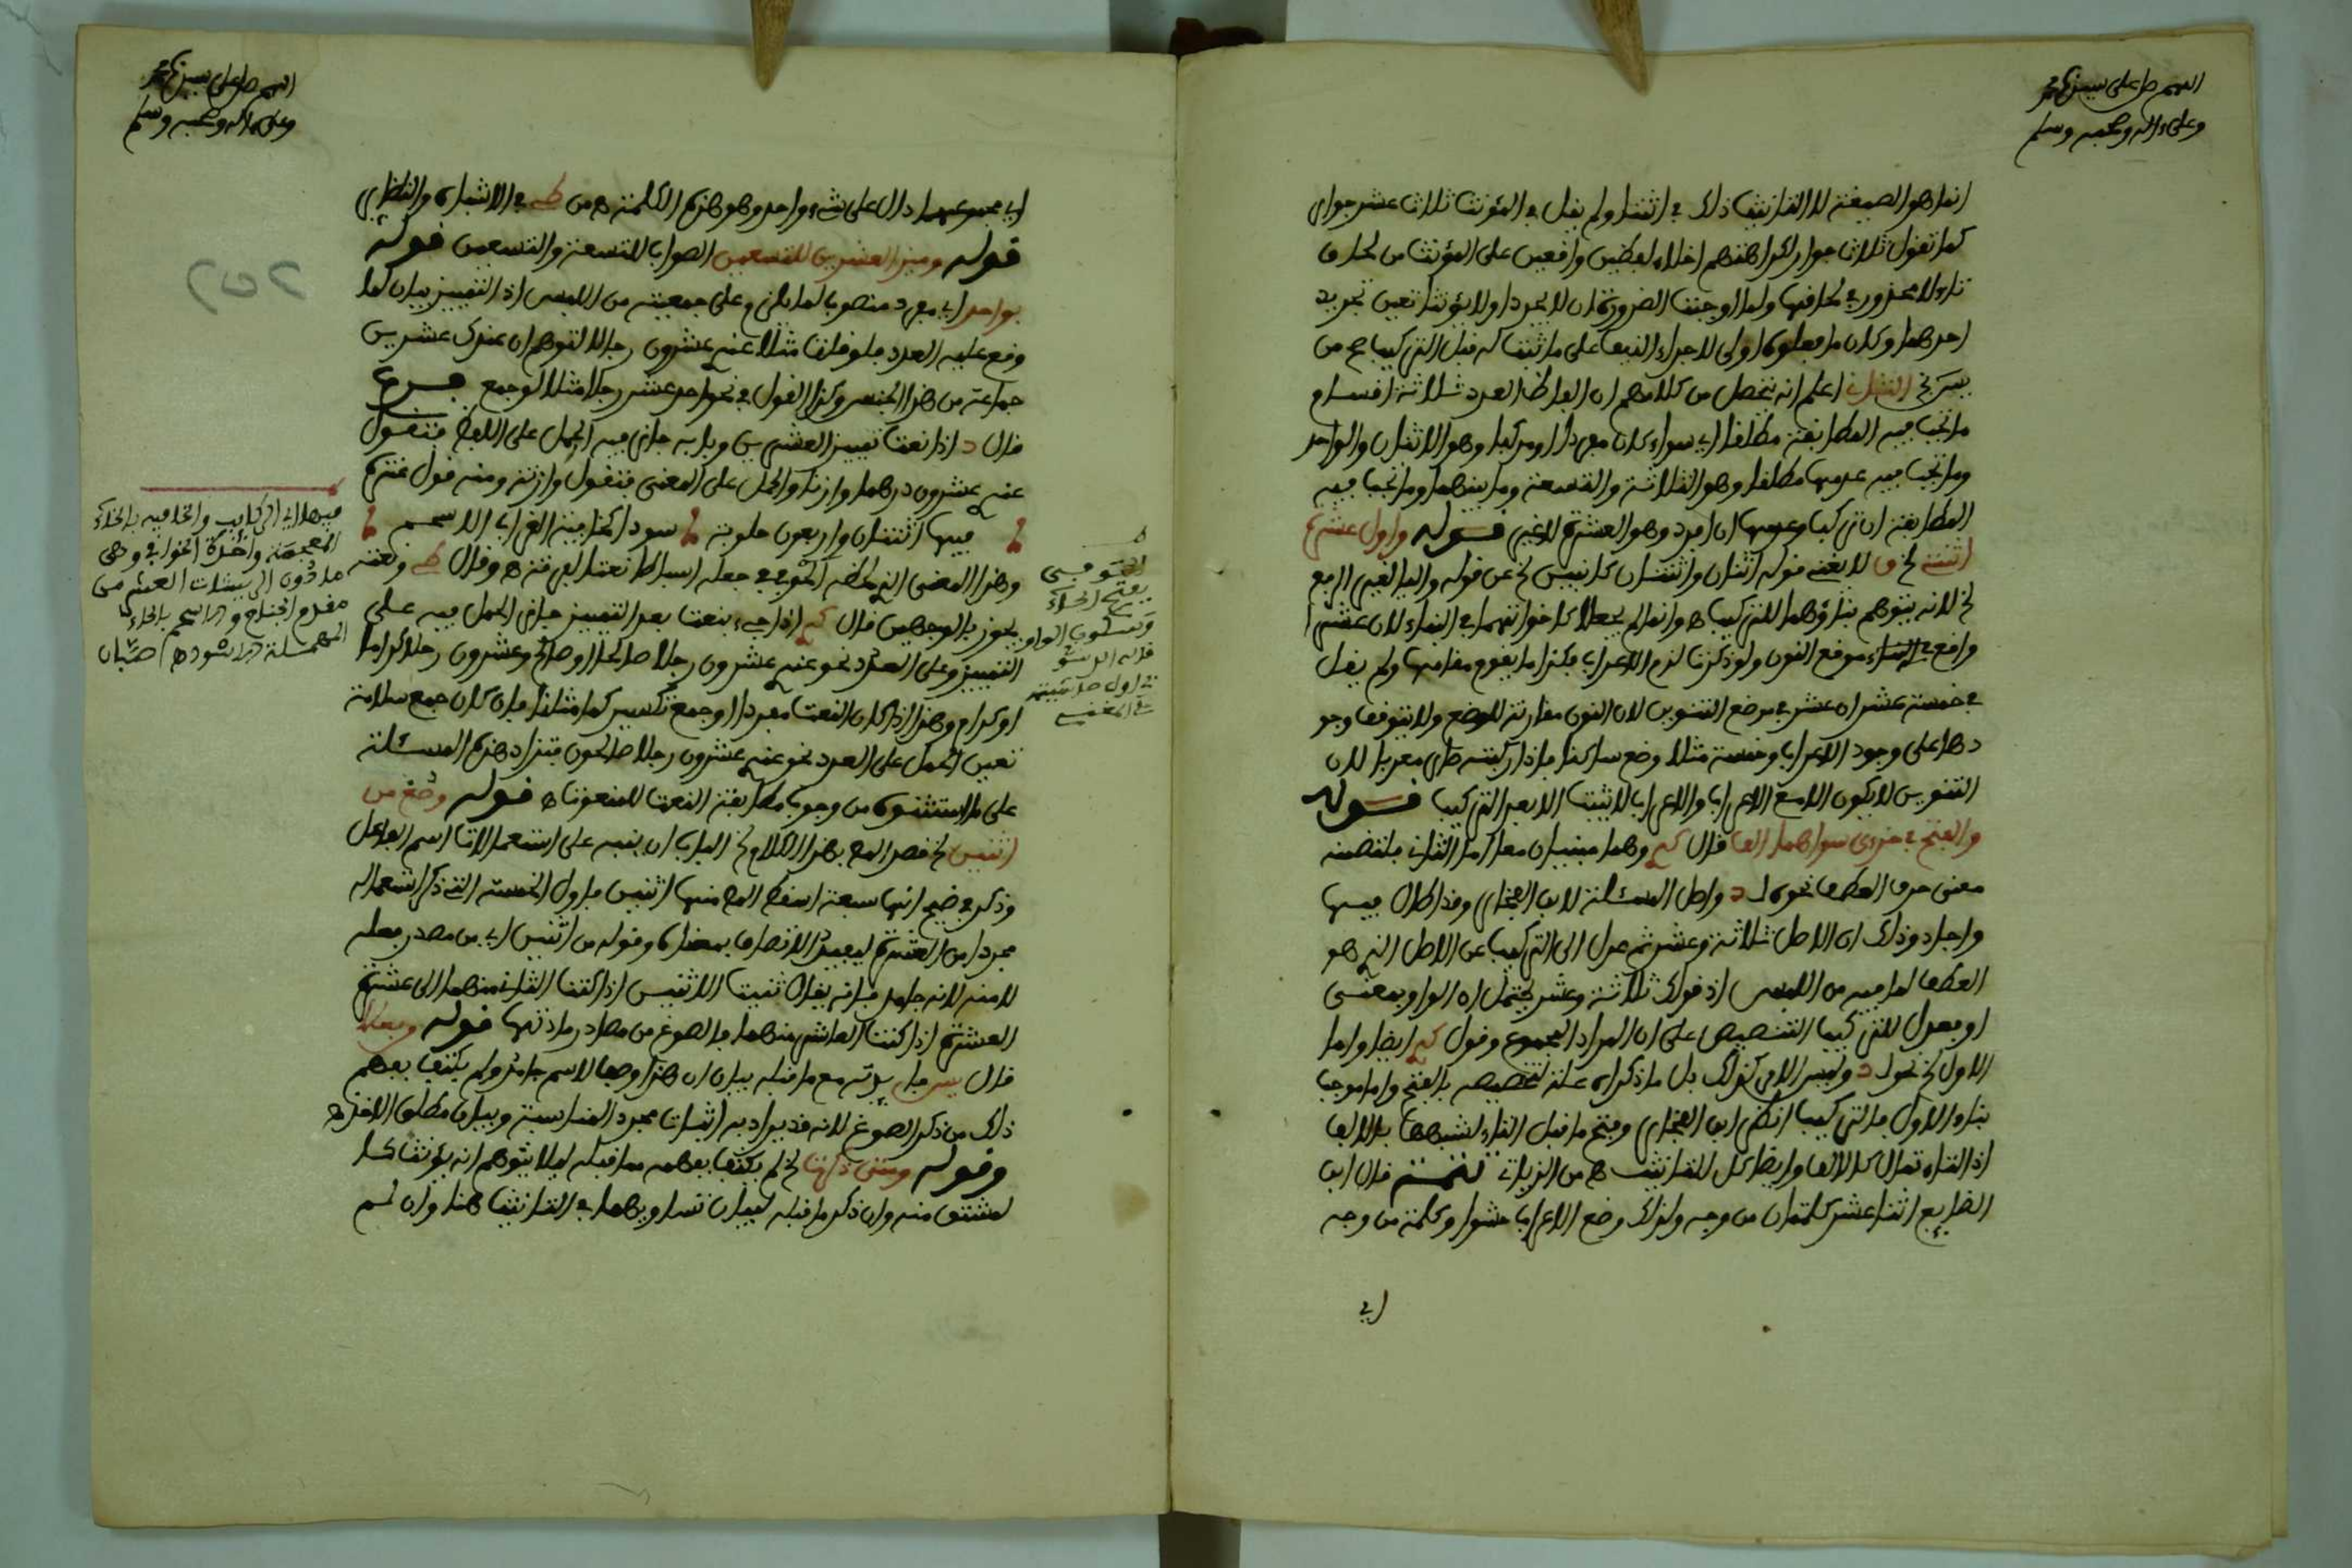 اللهم صل على سيدنا محمد
وعلى ءاله وصحبه وسلم
انما هو الصيغة لا التانيث ذلك في اثنتا ولم يقل في المؤنث ثلاث عشر جوار
كما تقول ثلاث جوار لكراهتهم اخلاء لفظين واقعين على المؤنث من لحاق
تاء لا محذور في لحاقها ولما اوجبت الضرورة ان لا يجردا ولا يؤنثا تعين تجريد
احدهما وكان ما فعلوه اولى لاجراء النيف على ما ثبت له قبل التركيب اهـ من
الثاني اعلم انه يتحصل من كلامهم ان الفاظ العدد ثلاثة اقسام
ما تجب فيه المطابقة مطلقا اي سواء كان مفردا او مركبا وهو الاثنان والواحد
وما تجب فيه عدمها مطلقا وهو الثلاثة والتسعة وما بينهما وما تجب فيه
المطابقة ان ركب وعدمها ان افرد وهو العشرة لا غير قوله واول عشرة
اثنتي الخ لا يغني قوله اثنان واثنتان كابنين الخ عن قوله واليا لغير الرفع
الخ لانه يتوهم بناؤهما للتركيب اهـ وانما لم يجعلا كاخواتهما في البناء لان عشر
واقع في البناء موقع النون ولو ذكرت لزم الاعراب فكذا ما يقوم مقامها ولم يقل
في خمسة عشر ان عشر في موضع التنوين لان النون مقارنة للوضع ولا يتوقف وجو
دها على وجود الاعراب وخمسة مثلا وضع ساكنا فاذا ركبته صار معربا لان
التنوين لا يكون الا مع الاعراب والاعراب لا يثبت الا بعد التركيب قوله
والفتح في جزءي سواهما الف قال وهما مبنيان معا اما الثاني فلتضمنه
معنى حرف العطف نحوه لـ د واصل المسئلة لابن الفخار وقد اطال فيها
واجاد وذلك ان الاصل ثلاثة وعشر ثم عدل الى التركيب عن الاصل الذي هو
العطف لما فيه من اللبس اذ قولك ثلاثة وعشر يحتمل ان الواو بمعنى
او فعدل للتركيب التنصيص على ان المراد المجموع وقول ايضا واما
الاول الخ نحوه لـ د وليس الامر كذلك بل ما ذكراه علة لتخصيصه بالفتح واما موجب
بناء الاول فالتركيب انظر ابن الفخار وفتح ما قبل التاء لشبهها بالالف
اذ التاء تمال كالالف وايضا كل للتانيث اهـ من الزيات تتمة قال ابن
الضايع اثنا عشر كلمتان من وجه ولذلك وضع الاعراب حشوا وكلمة من وجه
اي
اللهم صل على سيدنا محمد
وعلى ءاله وصحبه وسلم
اي مجموعهما دال على شيء واحد وهو هذه الكلمة اهـ من في الاشباه والنظائر
قوله وميز العشرين للتسعين الصواب للتسعة والتسعين قوله
بواحد اي مفرد منصوب لما يلزم على جمعيته من اللبس اذ التمييز بيان لما
وقع عليه العدد فلو قلت مثلا عندي عشرون رجالا لتوهم ان عندك عشرين
جماعة من هذا الجنس وكذا القول في نحو احد عشر رجلا مثلا لو جمع فرع
قال د اذا نعت تمييز العشرين وبابه جاز فيه الحمل على اللفظ فتقول
عندي عشرون درهما وازنا والحمل على المعنى فتقول وازنة ومنه قول عنترة
فيها اثنتان واربعون حلوبة سودا كخافية الغراب الاسحم
وهذا المعنى الذي لحظه الحوفي في جعله اسباطا نعتا لفرقة اهـ وقال ونعته
يجوز بالوجهين قال اذا جيء بنعت بعد التمييز جاز الحمل فيه على
التمييز وعلى العدد نحو عندي عشرون رجلا صالحا او صالح وعشرون رجلا كراما
او كرام وهذا اذا كان النعت مفردا او جمع تكسير كما مثلنا فان كان جمع سلامة
تعين الحمل على العدد نحو عندي عشرون رجلا صالحون فتزاد هذه المسئلة
على ما استثنوه من وجوب مطابقة النعت للمنعوت اهـ قوله وصغ من
اثنين الخ قصد الم بهذا الكلام الخ الباب ان ينبه على استعمالات اسم الفاعل
وذكر في ضيح انها سبعة اسقط الم منها اثنين فاول الخمسة التي ذكر استعماله
مجردا من العشرة ليفيد الاتصاف بمعناه وقوله من اثنين اي من مصدر فعله
لا منه لانه جامد فانه يقال ثنيت الاثنين اذا كنت الثاني منهما الى عشرة
العشرة اذا كنت العاشر منهما فالصوغ من مصادر ماذتها قوله وفعلا
قال فاي بدته مع ما قبله بيان ان هذا وصف لاسم جامد ولم يكتف بفهم
ذلك من ذكر الصوغ لانه قد يراد به اثبات مجرد المناسبة وبيان مطلق الاخذ اهـ
وقوله ومتى ذكرت الخ لم يكتف بفهمه مما قبله ليلا يتوهم انه يؤنث كما
لمشتق منه وان ذكر ما قبله لبيان تساويهما في التانيث هنا وان لم
الحوفي
بفتح الحاء
وسكون الواو
قاله الدسو
قي اول حاشيته
على المغني
فيها اي الركايب والخافية بالخاء
المعجمة واحدة الخوافي وهي
ما دون الريشات العشر من
مقدم الجناح والاسحم بالحاء
المهملة الاسود اهـ صبان